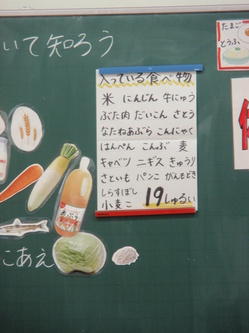 いて知ろう
たまご
とうふ
入っている食べ物
米 にんじん 牛にゅう
ぶた肉 だいこん さとう
なたねあぶら こんにゃく
はんぺん こんぶ 麦
キャベツ ニギス きゅうり
さといも パンこ がんもどき
しらすぼし
小麦こ 19しゅるい
こあえ